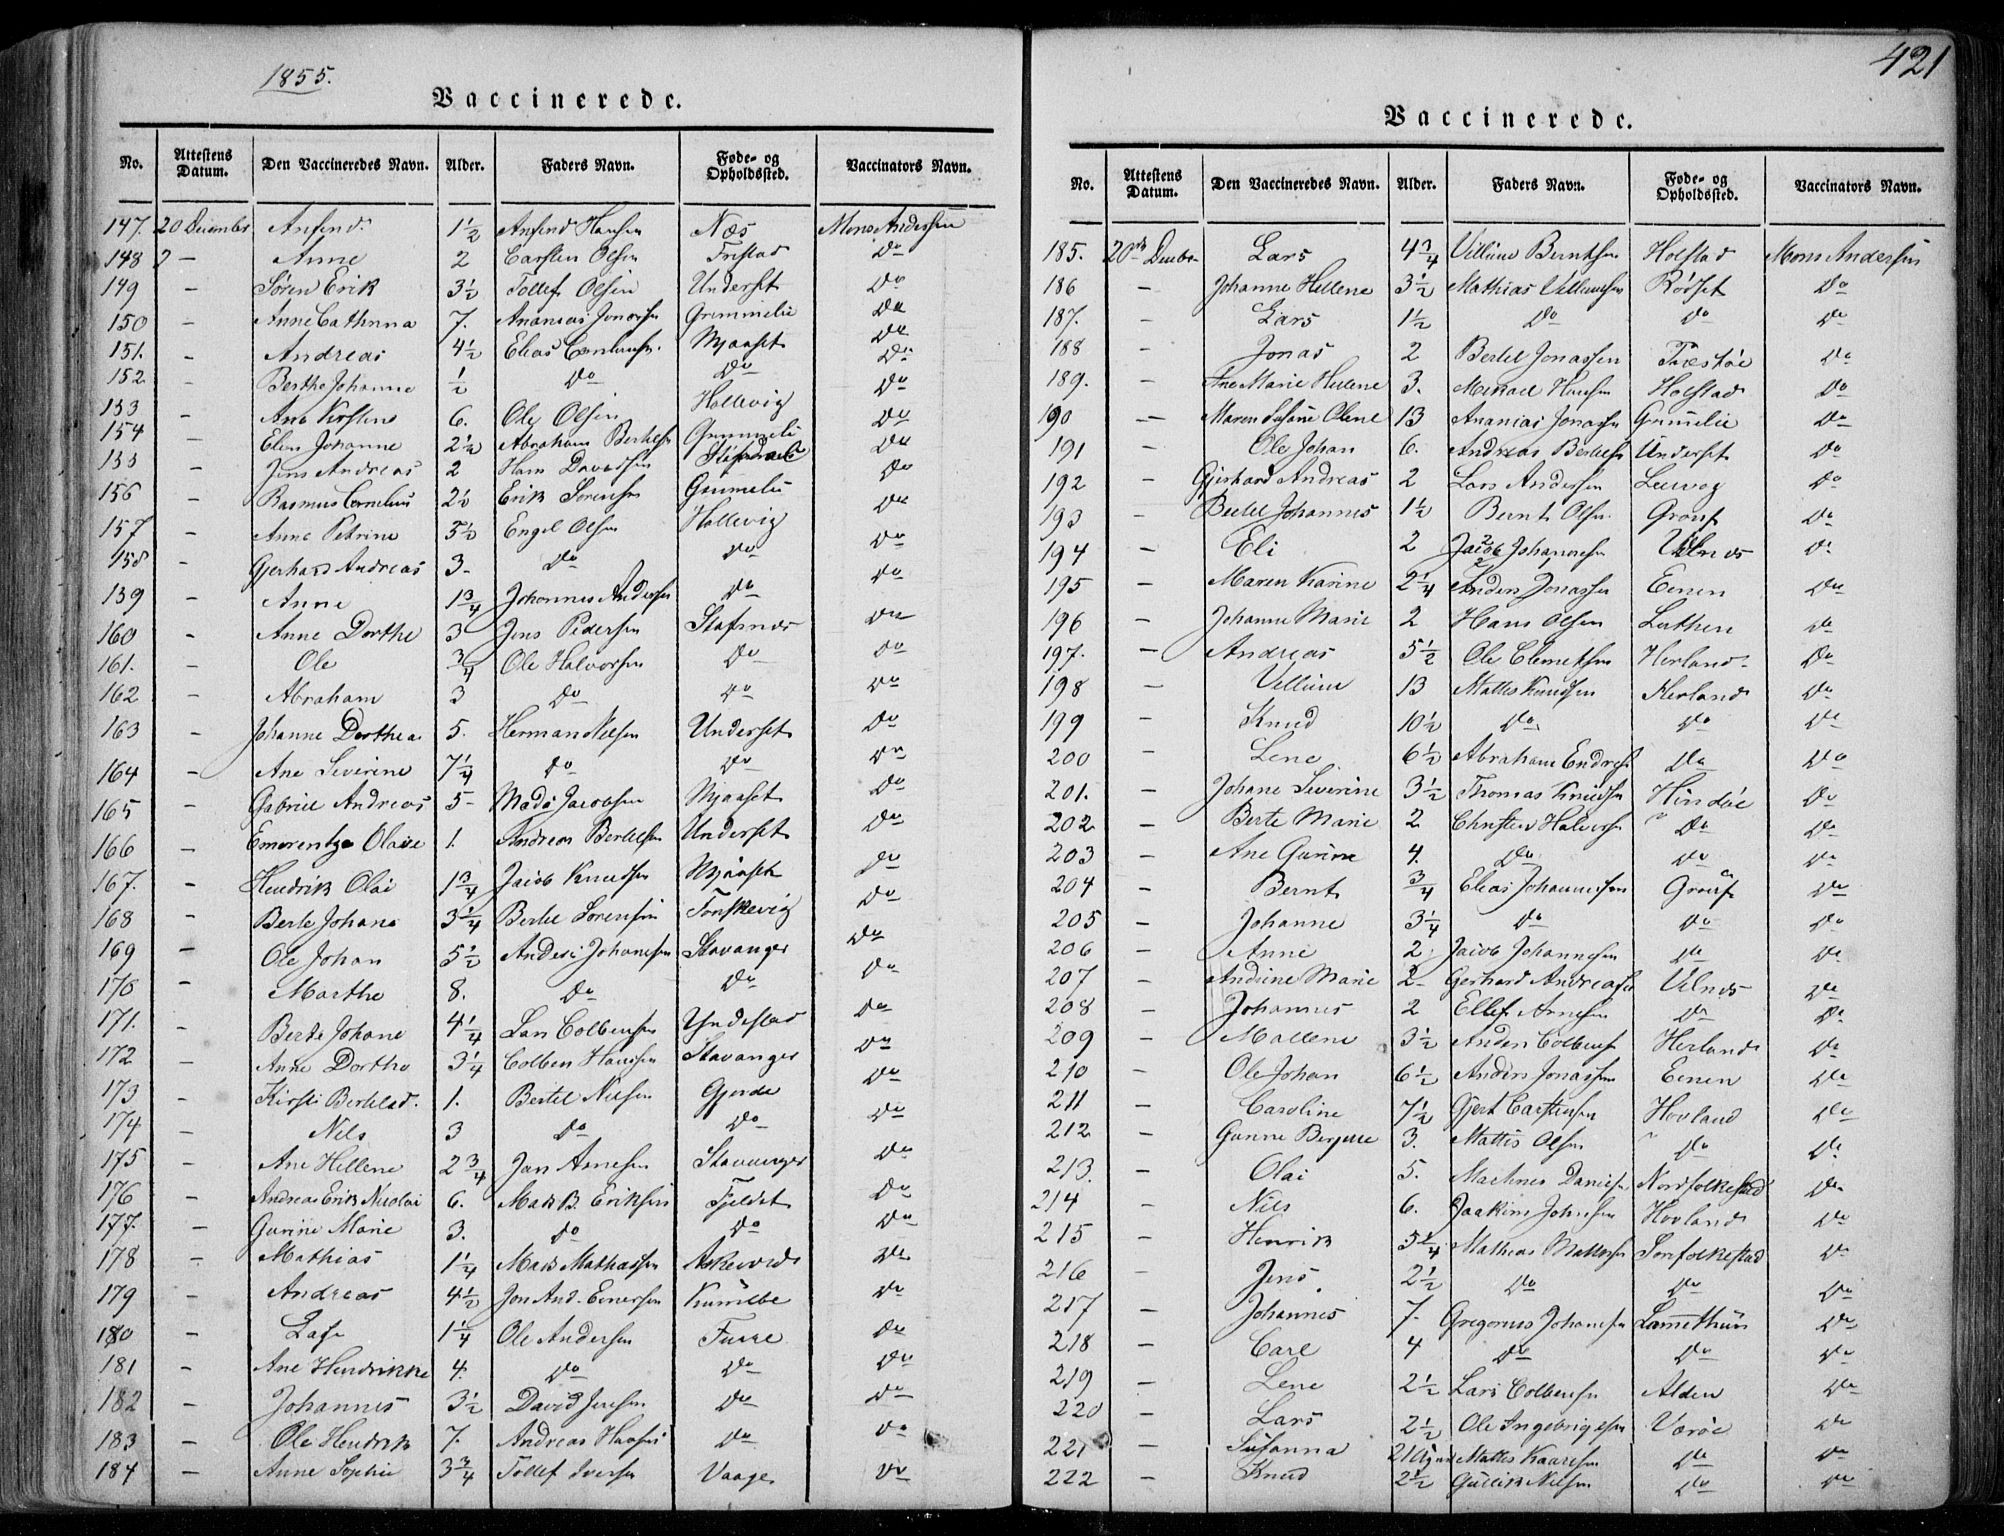 1855.
Vaccinerede.
No. Attestens Datum. Den Vaccineredes Navn. Alder. Faders Navn. Føde- og Opholdssted. Vaccinators Navn.
147. 20 December Anfind 1½ Anfind Hansen Næs Mons Andersen
148 – Anne 2 Carsten Olsen Tristad Do
149 – Søren Erik 3½ Tollef Olsen Underset Do
150 – Anne Cathrina 7. Ananias Jonassen Grimmelie Do
151. – Andreas 4½ Elias Mjaaset Do
152 – Berthe Johanne ½ Do Do Do
153 – Ane Kirstine 6. Ole Olsen Hellevig Do
154 – Elen Johanne 2½ Abraham Bertelsen Grimmeli Do
155 – Jens Andreas 2 Hans Davidsen Do
156 – Rasmus Cornelius 2½ Erik Sørensen Grimmelie Do
157 – Anne Petrine 5½ Engel Olsen Hellevig Do
158 – Gjerhard Andreas 3- Do Do Do
159 – Anne 1¾ Johannes Andersen Do Do
160 – Anne Dorthe 3 Jens Pedersen Stafsnæs Do
161. – Ole ¾ Ole Halvorsen Do Do
162 – Abraham 3 Do Do Do
163 – Johanne Dorthea 5. Herman Nielsen Underset Do
164 – Ane Severine 7¼ Do Do Do
165 – Gabriel Andreas 5- Mads Jacobsen Mjaaset Do
166 – Emerentze Olave 1. Andreas Bertelsen Underset Do
167. – Hendrik Olai 1¾ Jacob Knudsen Mjaaset Do
168 – Berte Johane 3¼ Bertel Sørensen Torskevig Do
169 – Ole Johan 5½ Anders Johannesen Stavanger Do
170 – Marthe 8. Do Do Do
171. – Berte Johane 4¼ Lars Colbensen Yndestad Do
172 – Anne Dorthe 3¼ Colben Hanssen Stavanger Do
173 – Kirsti Bertelsd. 1. Bertel Nielsen Gjerde Do
174 – Nils 3 Do Do Do
175 – Ane Hellene 2¾ Jan Arnesen Stavanger Do
176 – Andreas Erik Nicolai 6. Mads B. Eriksen Fjeldet Do
177. – Gurine Marie 3. Do Do Do
178 – Mathias 1¼ Mads Mathiassen Askevord Do
179 – Andreas 4½ Jon And. Eenersen Do
180 – 1¼ Ole Andersen Furre Do
181 – Ane Hendrikke 4. Do Do Do
182 – Johannes 3½ David Jensen Do Do
183 – Ole Hendrik 7. Andreas Hansen Do Do
184 – Anne Sophie 3¾ Tollef Iversen Vaage Do
421
Vaccinerede.
No. Attestens Datum. Den Vaccineredes Navn. Alder. Faders Navn. Føde- og Opholdssted. Vaccinators Navn.
185. 20de Decbr Lars 4¾ Villum Berntsen Holstad Mons Andersen
186 – Johanne Hellene 3½ Mathias Villumsen Rødset Do
187. – Lars 1½ Do Do Do
188 – Jonas 2 Bertel Jonassen Træsøe Do
189. – Ane Marie Helene 3. Mikael Hansen Holstad Do
190 – Maren Susane Olene 13 Ananias Jonassen Grimelie Do
191 – Ole Johan 6. Andreas Bertelsen Underset Do
192 – Gjerhard Andreas 2 Lars Andersen Leevog Do
193 – Bertel Johannes 1½ Bernt Olsen Do
194 – Eli 2 Jacob Johannesen Vilnæs Do
195 – Maren Karine 2¼ Anders Jonassen Eenen Do
196 – Johanne Marie 2 Hans Olsen Do
197. – Andreas 5½ Ole Clemetsen Herland Do
198 – Villum 13 Mattis Knudsen Herland Do
199 – Knud 10½ Do Do Do
200 – Lene 6½ Abraham Endresen Do Do
201. – Johane Severine 3½ Thomas Knudsen Hindøe Do
202 – Berte Marie 2 Christen Halvorsen Do Do
203 – Ane Gurine 4. Do Do Do
204 – Bernt ¾ Elias Johannessen Do
205 – Johanne 3¼ Do Do Do
206 – Anne 2 Jacob Johannesen Do Do
207 – Andrine Marie 2- Gerhard Andreasen Vilnæs Do
208 – Johannes 2 Ellef Arnesen Do Do
209 – Mallene 3½ Anders Colbensen Herland Do
210 – Ole Johan 6½ Anders Jonassen Eenen Do
211 – Caroline 7½ Gjert Carstensen Hovland Do
212 – Gunne Bergette 3. Mattis Olsen Do Do
213. – Olai 5. Danielsen Nordfolkestad Do
214 – Nils 6. Joakim Johnsen Hovland Do
215 – Henrik 5¼ Mathias Mattessen Sørfolkestad Do
216 – Jens 2½ Do Do Do
217 – Johannes 7. Gregorius Johannesen Lammethun Do
218 – Carl 4 Do Do Do
219 – Lene 2½ Lars Colbensen Alden Do
220 – Lars 2½ Ole Ingebrigtsen Værøe Do
221 – Susanna Mattis Kaaresen Do Do
222 – Knud 2½ Gullik Nilsen Do Do